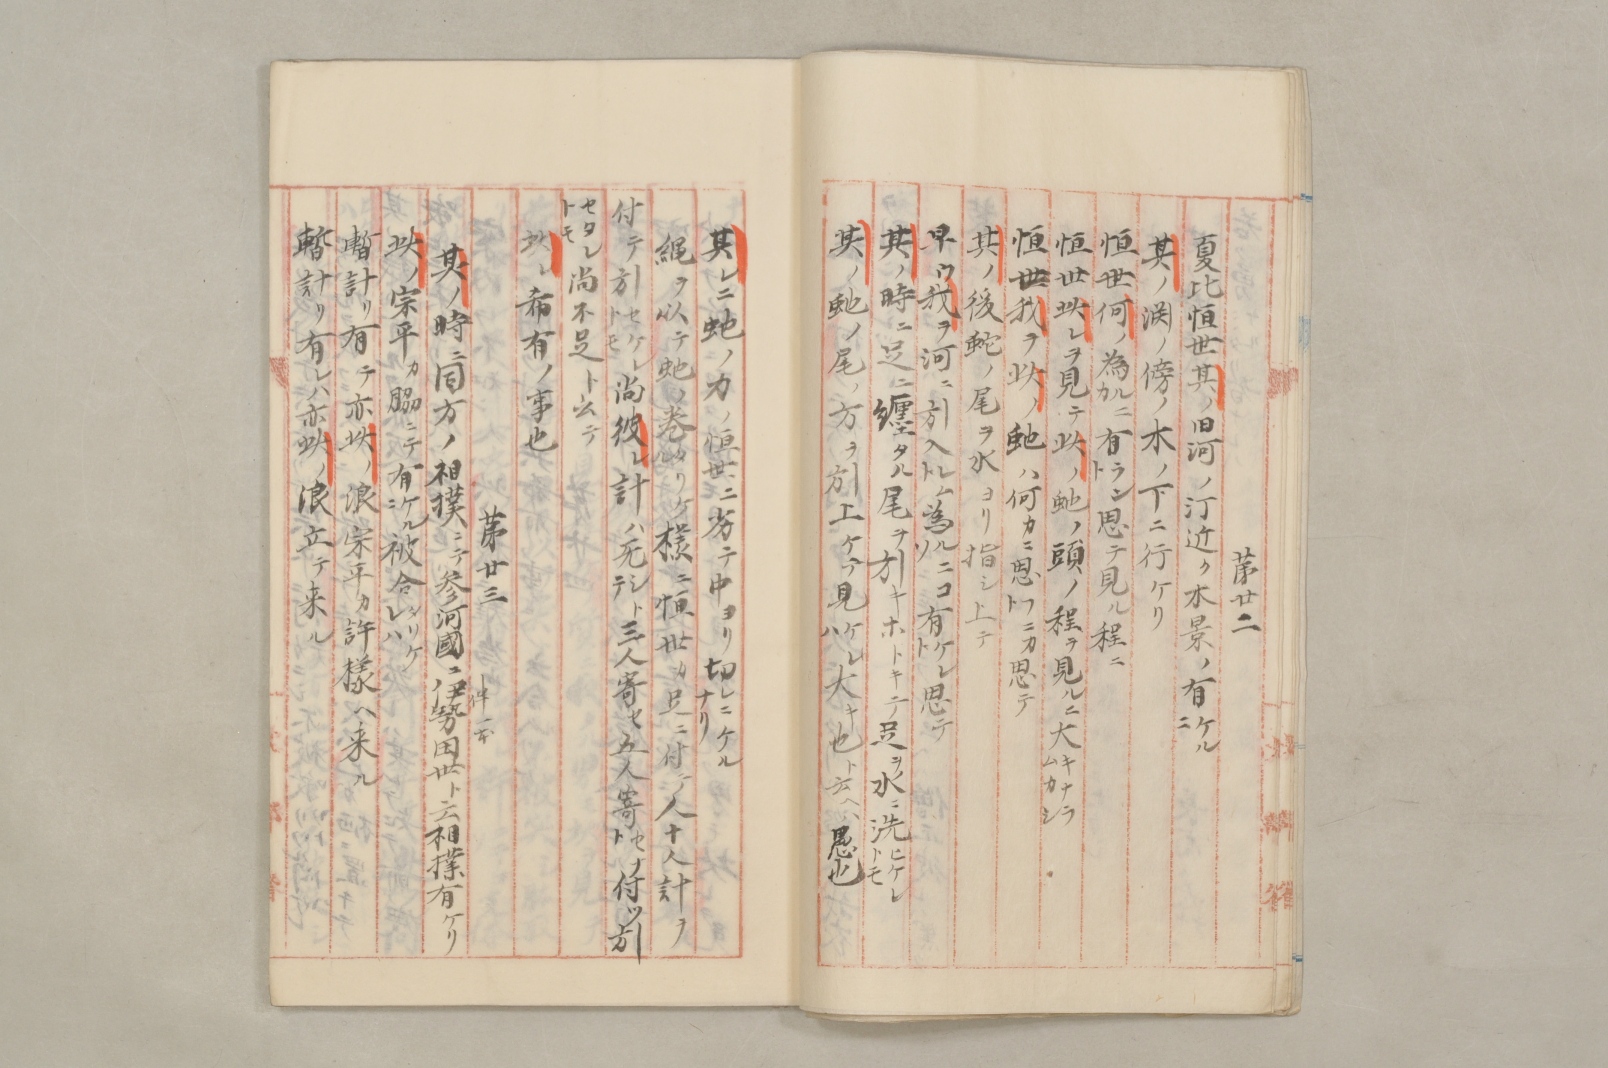 第廿二
夏比恒世其ノ旧河ノ汀近ク木景ノ有ケルニ
其ノ渕ノ傍ノ木ノ下ニ行ケリ
恒世何ノ為カルニ有ラント思テ見ル程ニ
恒世此レヲ見テ此ノ虵ノ頭ノ程ヲ見ルニ大キナラムカシ
恒世我ヲ此ノ虵ハ何カニ思フニカト思テ
其ノ後蛇ノ尾ヲ水ヨリ指シ上テ
早ウ我ヲ河ニ引入レムト為ルニコソ有ケレト思テ
其ノ時ニ足ニ纏タル尾ヲ引キホトキテ足ヲ水ニ洗ヒケレトモ
其ノ虵ノ尾ノ方ヲ引上ケテ見ケレハ大キ也ト云ヘハ愚也
其レニ虵ノ力ノ恒世ニ劣テ中ヨリ切レニケルナリ
縄ヲ以テ虵ノ巻タリケル様ニ恒世カ足ニ付テ人十人計ヲ
付テ引セケレトモ尚彼レ計ハ无シトテ三人寄セ五人寄セナト付ツヽ引
セタレトモ尚不足ト云テ
此レ希有ノ事也
第廿三
其ノ時ニ同方ノ相撲ニテ参河國ニ伊勢田世ト云相撲有ケリ
此ノ宗平カ脇ニテ有ケルニ被合タリケレハ
暫計リ有テ亦此ノ浪宗平カ許様ヘ来ル
暫計リ有レハ亦此ノ浪立テ来ル